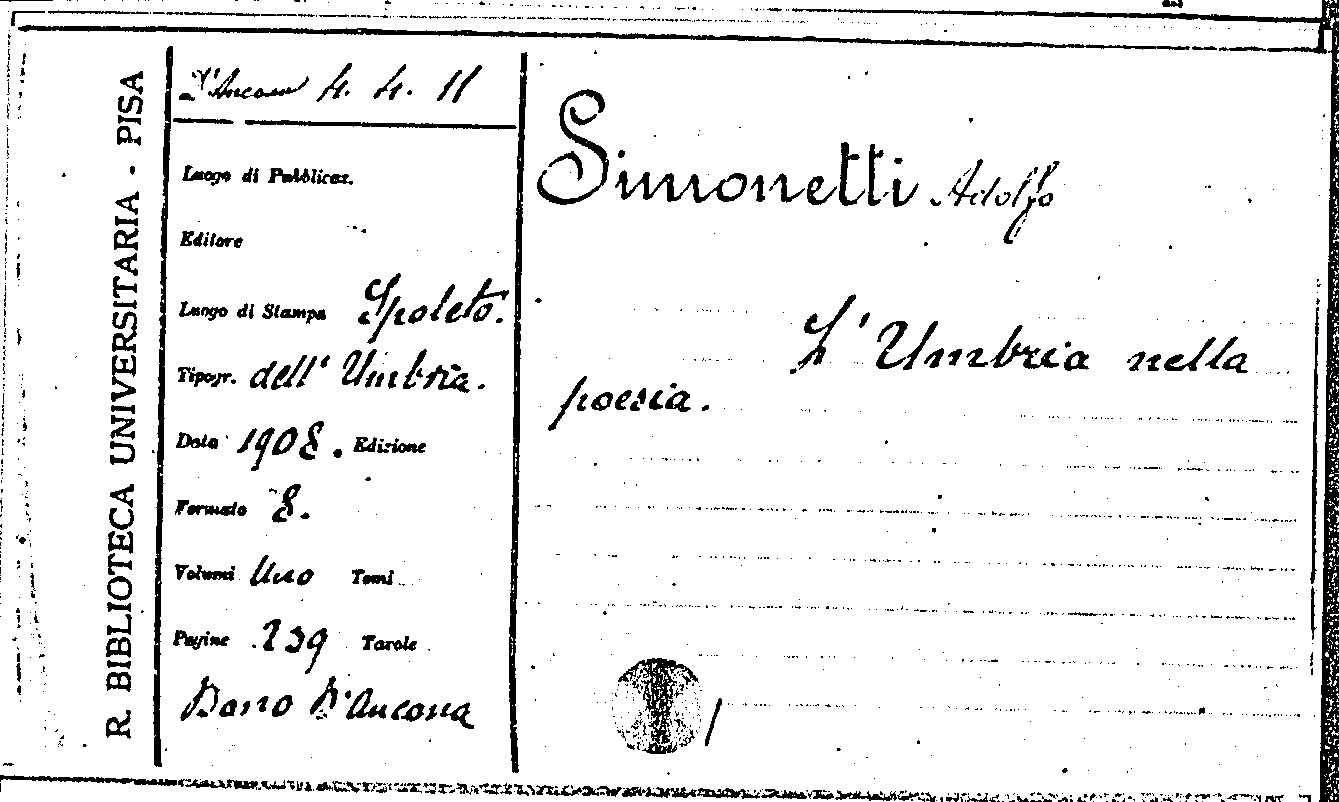 R. BIBLIOTECA UNIVERSITARIA - PISA
D'Ancona 4. 4. 11
Luogo di Pubblicaz.
Editore
Luogo di Stampa Spoleto.
Tipogr. dell' Umbria.
Data 1908. Edizione
Formato 8.
Volumi Uno Tomi
Pagine 239 Tavole
Dono D'Ancona
Simonetti Adolfo
L'Umbria nella
poesia.